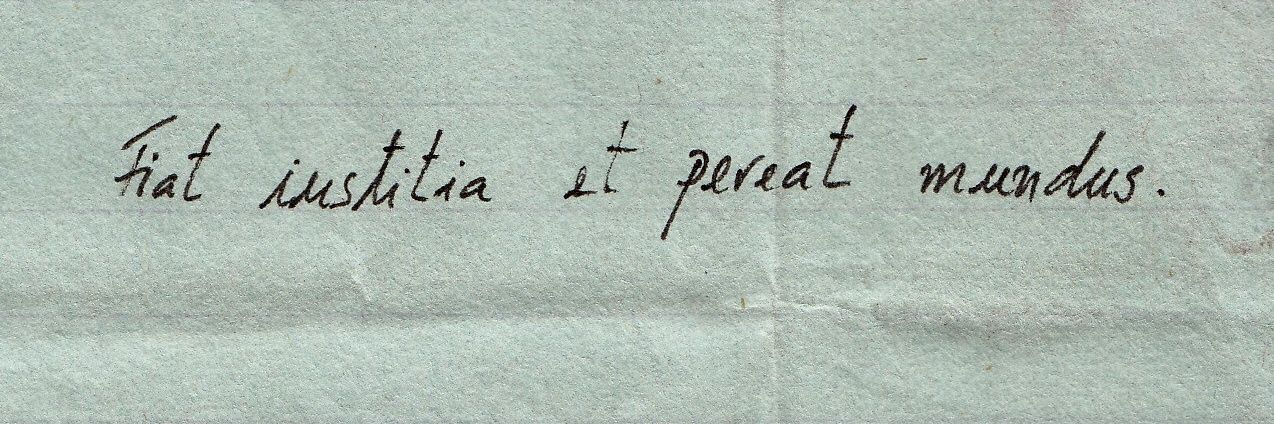 Fiat iustitia et pereat mundus.